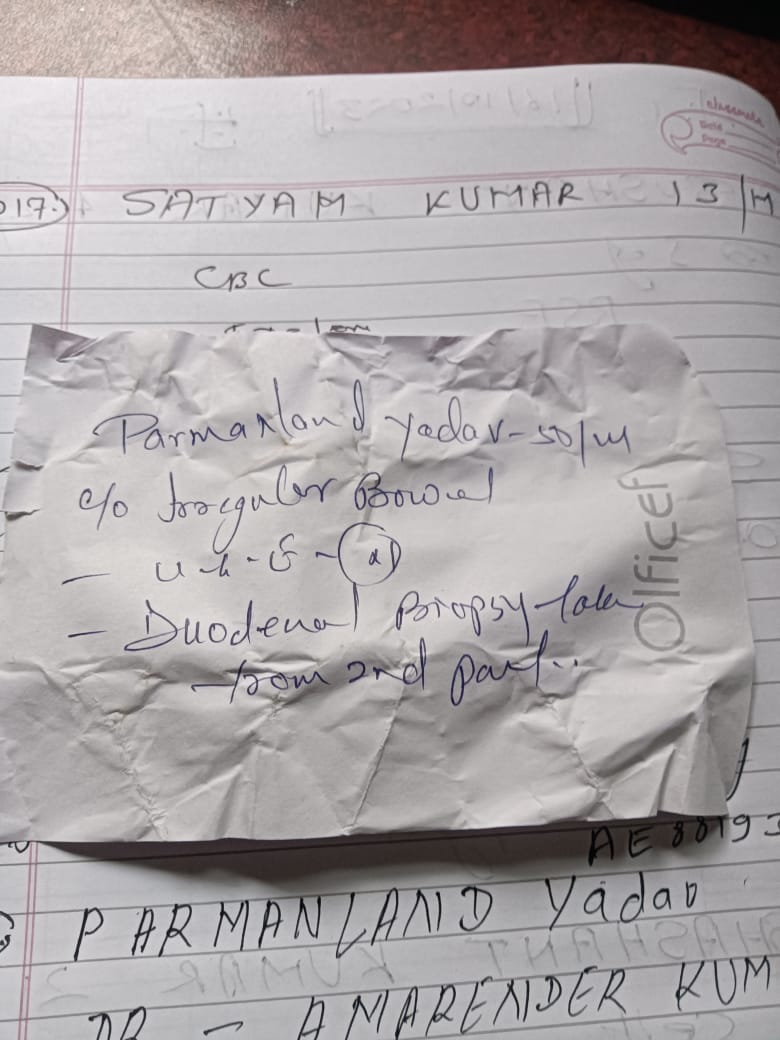 classmate
Date
Page
017.) SATYAM KUMAR 13/M
CBC
Parmanland yadav - 50/M
c/o Irregular Bowel
-
- Duodenal Biopsy taken
from 2nd part..
Olficef
AE 88193
PARMANLAND Yadav
DR - AMARENDER KUM